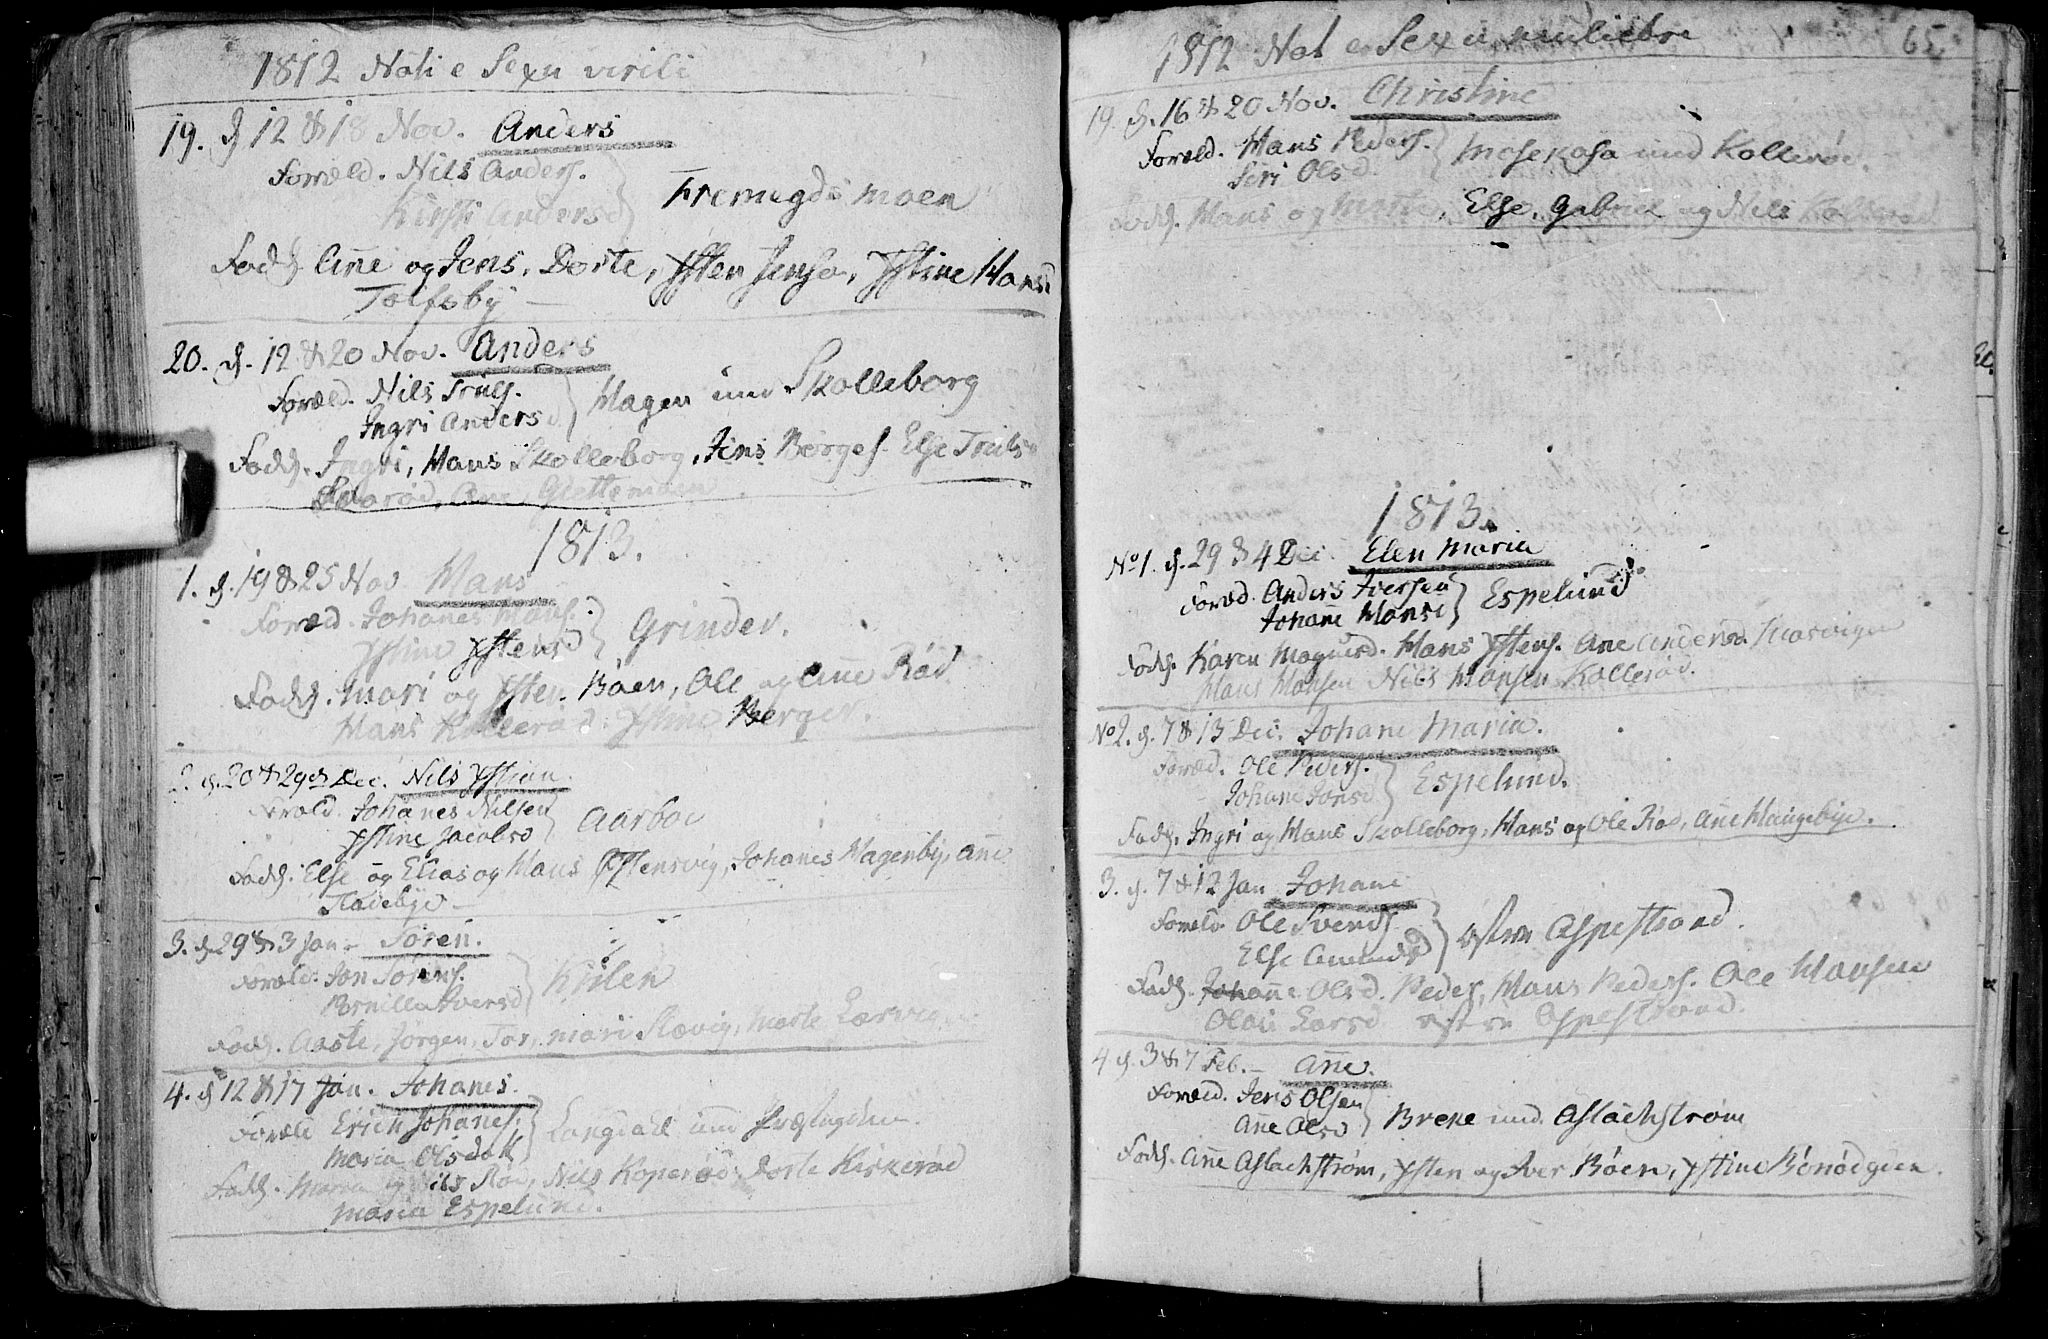 1812 Nati e Sexu virili
19. d 12 & 18 Nov. Anders
Foræld. Nils Anders.
Kirsti Andersd
Fremmegdsmoen
Fadd. Añe og Jens, Dorte, Xsten Jensa, Xstine Hansd
Tolfsby
20. d. 12 & 20 Nov. Anders
Foræld. Nils Truls.
Ingri Anders
Hagen und Skolleborg
Fadd. Ingri, Hans Skolleborg, Jens Børges. Else Truls
Ane Glettemoen
1813.
1. d. 19 & 25 Nov Hans
Foræld. Johanes Hans.
Xstine Xstensd
Grinder.
Fadd. Mari og Xsten Båen, Ole og Añe Rød
Hans Kollerød. Xstine Berger.
2. d. 20 & 29de Dec. Nils Xstian.
Foræld. Johanes Nilsen
Xstine Jacobsd
Aarboe
Fadd. Else og Elias og Hans Xstensvig, Johanes Hagenby, Añe
3. d. 29 & 3 Jan. Søren.
Foræld. Jon Sørens.
Pernilla Iversd
Kiilen
Fadd. Aaste, Jørgen, Tor, Mari Slævig, Marte Lervig
4. d 12 & 17 Jan. Johanes.
Foræld Erich Johanes.
Maria Olsdat
Langdahl und Præstegden.
Fadd. Maria og Nils Røe, Nils Koperød, Dorte Kirkerød
Maria Espelund.
1812 Nat e Sexu muliebri 65.
19. d. 16 & 20 Nov. Christine
Foræld. Hans Peders.
Siri Olsd.
Mosekasa und Kollerøe.
Fadd. Hans og Marte, Else, Gabriel og Nils Kollerø
1813.
No 1. d. 29 & 4 Dec. Elen Maria
Foræld. Anders Iversen
Johañe Hansd
Espelund
Fadd. Karen Magnusd. Hans Xstens. Ane Andersd.
Hans Hansen Nils Hansen Kollerød.
No 2. d. 7 & 13 Dec. Johane Maria.
Foræld. Ole Peders.
Johane Jonsd
Espelund.
Fadd. Ingri og Hans Skolleborg, Hans og Ole Rød, Añe Haugebye.
3. d. 7 & 12 Jan Johane
Foræld. Ole Svends.
Else Amunds
østre Aspestrand.
Fadd. Johañe Olsd. Peder, Hans Peders. Ole Hansen
Olou Larsd østre Aspestrand.
4 d. 3 & 7 Feb. – Añe.
Foræld. Jens Olsen
Añe Olsd
Breke und. Aslachstrøm
Fadd. Añe Aslachstrøm, Xsten og Iver Båen, Xstine Bønødgien.